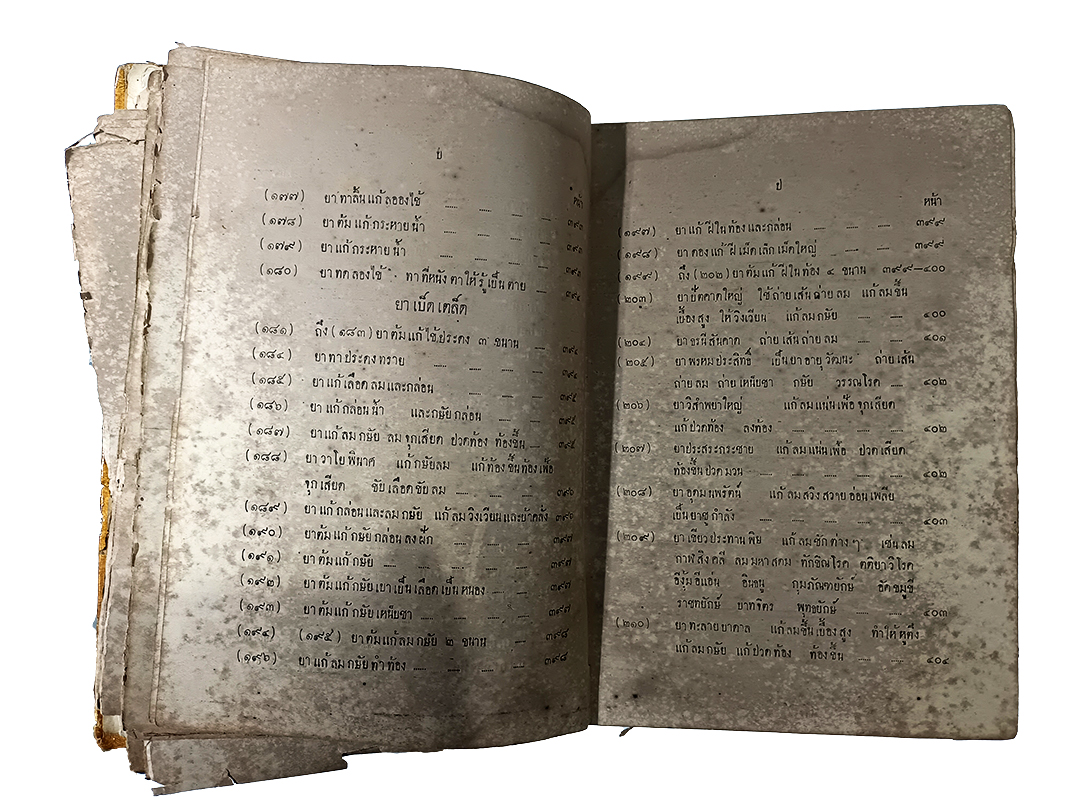 ป
หน้า
(๑๗๗) ยาทาลิ้นแก้ลอองไข้ ...... ...... ...... ...... ๓๙๓
(๑๗๘) ยาต้มแก้กระหายน้ำ ...... ...... ...... ...... ๓๙๓
(๑๗๙) ยาแก้กระหายน้ำ ...... ...... ...... ...... ๓๙๓
(๑๘๐) ยาทดลองไข้ ทาที่หนังตาให้รู้เป็นตาย ...... ๓๙๔
ยาเบ็ดเตล็ด
(๑๘๑) ถึง (๑๘๓) ยาต้มแก้ไข้ประดง ๓ ขนาน ...... ๓๙๔
(๑๘๔) ยาทาประดงทราย ...... ...... ...... ...... ๓๙๔
(๑๘๕) ยาแก้เลือดลมและกล่อน ...... ...... ...... ๓๙๕
(๑๘๖) ยาแก้กล่อนน้ำ และกษัยกล่อน ...... ...... ๓๙๕
(๑๘๗) ยาแก้ลมกษัย ลมจุกเสียด ปวดท้อง ท้องขึ้น ...... ๓๙๕
(๑๘๘) ยาวาโยพินาศ แก้กษัยลม แก้ท้องขึ้นท้องเฟ้อ
จุกเสียด ขับเลือดขับลม ...... ...... ...... ๓๙๖
(๑๘๙) ยาแก้กล่อนและลมกษัย แก้ลมวิงเวียนและบ้าคลั่ง ๓๙๖
(๑๙๐) ยาต้มแก้กษัยกล่อนลงฝัก ...... ...... ...... ๓๙๗
(๑๙๑) ยาต้มแก้กษัย ...... ...... ...... ...... ๓๙๗
(๑๙๒) ยาต้มแก้กษัยเบาเป็นเลือดเป็นหนอง ...... ...... ๓๙๗
(๑๙๓) ยาต้มแก้กษัยเหน็บชา ...... ...... ...... ๓๙๗
(๑๙๔) (๑๙๕) ยาต้มแก้ลมกษัย ๒ ขนาน ...... ...... ๓๙๘
(๑๙๖) ยาแก้ลมกษัยทำท้อง ...... ...... ...... ...... ๓๙๘
ป
หน้า
(๑๙๗) ยาแก้ฝีในท้องและกล่อน ...... ...... ...... ๓๙๙
(๑๙๘) ยาดองแก้ฝีเม็ดเล็กเม็ดใหญ่ ...... ...... ...... ๓๙๙
(๑๙๙) ถึง (๒๐๒) ยาต้มแก้ฝีในท้อง ๔ ขนาน ๓๙๙–๔๐๐
(๒๐๓) ยาย้ดดาดใหญ่ ใช้ถ่ายเส้นถ่ายลม แก้ลมขึ้น
เบื้องสูง ให้วิงเวียน แก้ลมกษัย ...... ...... ๔๐๐
(๒๐๔) ยาธรนีสันฑาต ถ่ายเส้นถ่ายลม ...... ...... ๔๐๑
(๒๐๕) ยาพรหมประสิทธิ์ เป็นยาอายุวัฒนะ ถ่ายเส้น
ถ่ายลม ถ่ายเหน็บชา กษัย วรรณโรค ...... ๔๐๒
(๒๐๖) ยาวิสำพยาใหญ่ แก้ลมแน่นเฟ้อ จุกเสียด
แก้ปวดท้อง ลงท้อง ...... ...... ...... ...... ๔๐๒
(๒๐๗) ยาประสระกระชาย แก้ลมแน่นเฟ้อ ปวดเสียด
ท้องขึ้นปวดมวน ...... ...... ...... ...... ๔๐๒
(๒๐๘) ยาอุดมนพรัตน์ แก้ลมสวิงสวายอ่อนเพลีย
เป็นยาชูกำลัง ...... ...... ...... ...... ๔๐๓
(๒๐๙) ยาเขียวประทานพิษ แก้ลมชักต่างๆ เช่นลม
กาฬสิงคลี ลมมหาสดม ทักขิณโรค ตติยาวิโรค
อีงุ้มอีแอ่น อินธนู กุมภัณฑยักษ์ อัคชมูขี
ราชทยักษ์ บาทจิตร พุทธยักษ์ ...... ...... ๔๐๓
(๒๑๐) ยาทะลายบาดาล แก้ลมขึ้นเบื้องสูง ทำให้หูตึง
แก้ลมกษัย แก้ปวดท้อง ท้องขึ้น ...... ...... ๔๐๔